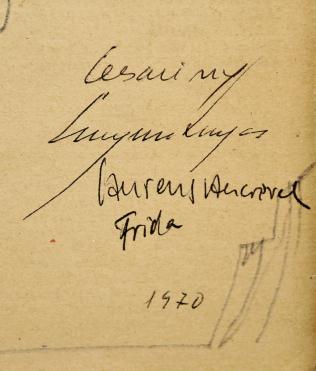 Cesariny
Laurens Vancrevel
Frida
1970